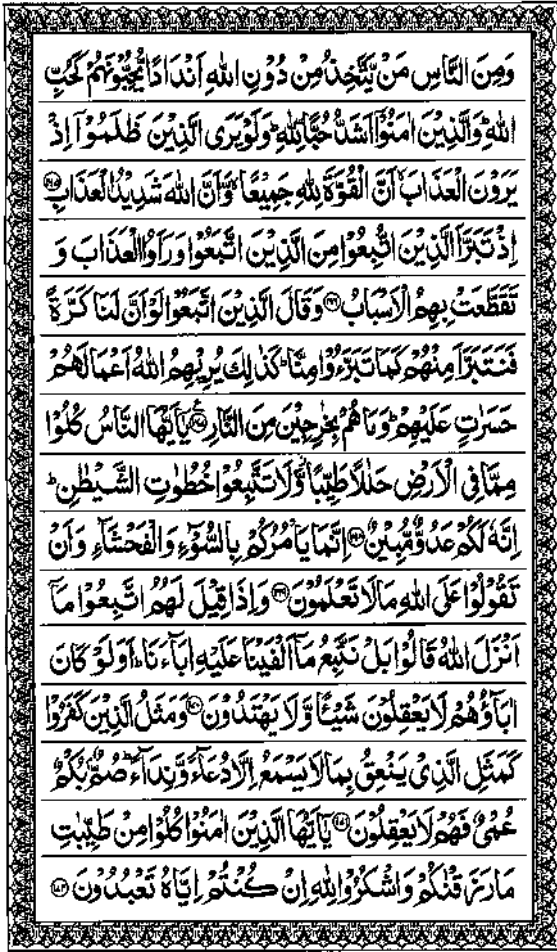 وَمِنَ النَّاسِ مَنْ يَّتَّخِذُ مِنْ دُوْنِ اللّٰهِ اَنْدَادًا يُّحِبُّوْنَهُمْ كَحُبِّ
اللّٰهِ ؕ وَالَّذِيْنَ اٰمَنُوْۤا اَشَدُّ حُبًّا لِّلّٰهِ ؕ وَلَوْ يَرَى الَّذِيْنَ ظَلَمُوْۤا اِذْ
يَرَوْنَ الْعَذَابَ ۙ اَنَّ الْقُوَّةَ لِلّٰهِ جَمِيْعًا ۙ وَّاَنَّ اللّٰهَ شَدِيْدُ الْعَذَابِ ﴿۱۶۵﴾
اِذْ تَبَرَّاَ الَّذِيْنَ اتُّبِعُوْا مِنَ الَّذِيْنَ اتَّبَعُوْا وَرَاَوُا الْعَذَابَ وَ
تَقَطَّعَتْ بِهِمُ الْاَسْبَابُ ﴿۱۶۶﴾ وَقَالَ الَّذِيْنَ اتَّبَعُوْا لَوْ اَنَّ لَنَا كَرَّةً
فَنَتَبَرَّاَ مِنْهُمْ كَمَا تَبَرَّءُوْا مِنَّا ؕ كَذٰلِكَ يُرِيْهِمُ اللّٰهُ اَعْمَالَهُمْ
حَسَرٰتٍ عَلَيْهِمْ ؕ وَمَا هُمْ بِخٰرِجِيْنَ مِنَ النَّارِ ﴿۱۶۷﴾ يٰۤاَيُّهَا النَّاسُ كُلُوْا
مِمَّا فِى الْاَرْضِ حَلٰلًا طَيِّبًا ۖ وَّلَا تَتَّبِعُوْا خُطُوٰتِ الشَّيْطٰنِ ؕ
اِنَّهٗ لَكُمْ عَدُوٌّ مُّبِيْنٌ ﴿۱۶۸﴾ اِنَّمَا يَاْمُرُكُمْ بِالسُّوْٓءِ وَالْفَحْشَآءِ وَاَنْ
تَقُوْلُوْا عَلَى اللّٰهِ مَا لَا تَعْلَمُوْنَ ﴿۱۶۹﴾ وَاِذَا قِيْلَ لَهُمُ اتَّبِعُوْا مَاۤ
اَنْزَلَ اللّٰهُ قَالُوْا بَلْ نَتَّبِعُ مَاۤ اَلْفَيْنَا عَلَيْهِ اٰبَآءَنَا ؕ اَوَلَوْ كَانَ
اٰبَآؤُهُمْ لَا يَعْقِلُوْنَ شَيْـًٔا وَّلَا يَهْتَدُوْنَ ﴿۱۷۰﴾ وَمَثَلُ الَّذِيْنَ كَفَرُوْا
كَمَثَلِ الَّذِىْ يَنْعِقُ بِمَا لَا يَسْمَعُ اِلَّا دُعَآءً وَّنِدَآءً ؕ صُمٌّۢ بُكْمٌ
عُمْىٌ فَهُمْ لَا يَعْقِلُوْنَ ﴿۱۷۱﴾ يٰۤاَيُّهَا الَّذِيْنَ اٰمَنُوْا كُلُوْا مِنْ طَيِّبٰتِ
مَا رَزَقْنٰكُمْ وَاشْكُرُوْا لِلّٰهِ اِنْ كُنْتُمْ اِيَّاهُ تَعْبُدُوْنَ ﴿۱۷۲﴾